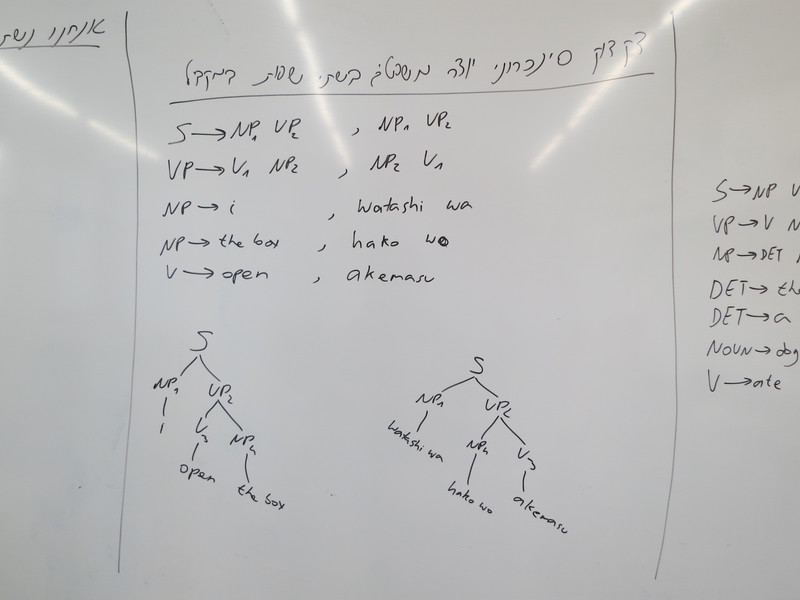 אנחנו נשת
דקדוק סינכרוני יוצר משפטים בשתי שפות במקביל
S → NP₁ VP₂ , NP₁ VP₂
VP → V₁ NP₂ , NP₂ V₁
NP → i , watashi wa
NP → the box , hako wo
V → open , akemasu
S
NP₁ VP₂
i V₃ NP₄
open the box
S
NP₁ VP₂
watashi wa NP₄ V₃
hako wo akemasu
S → NP V
VP → V N
NP → DET
DET → the
DET → a
NOUN → dog
V → ate